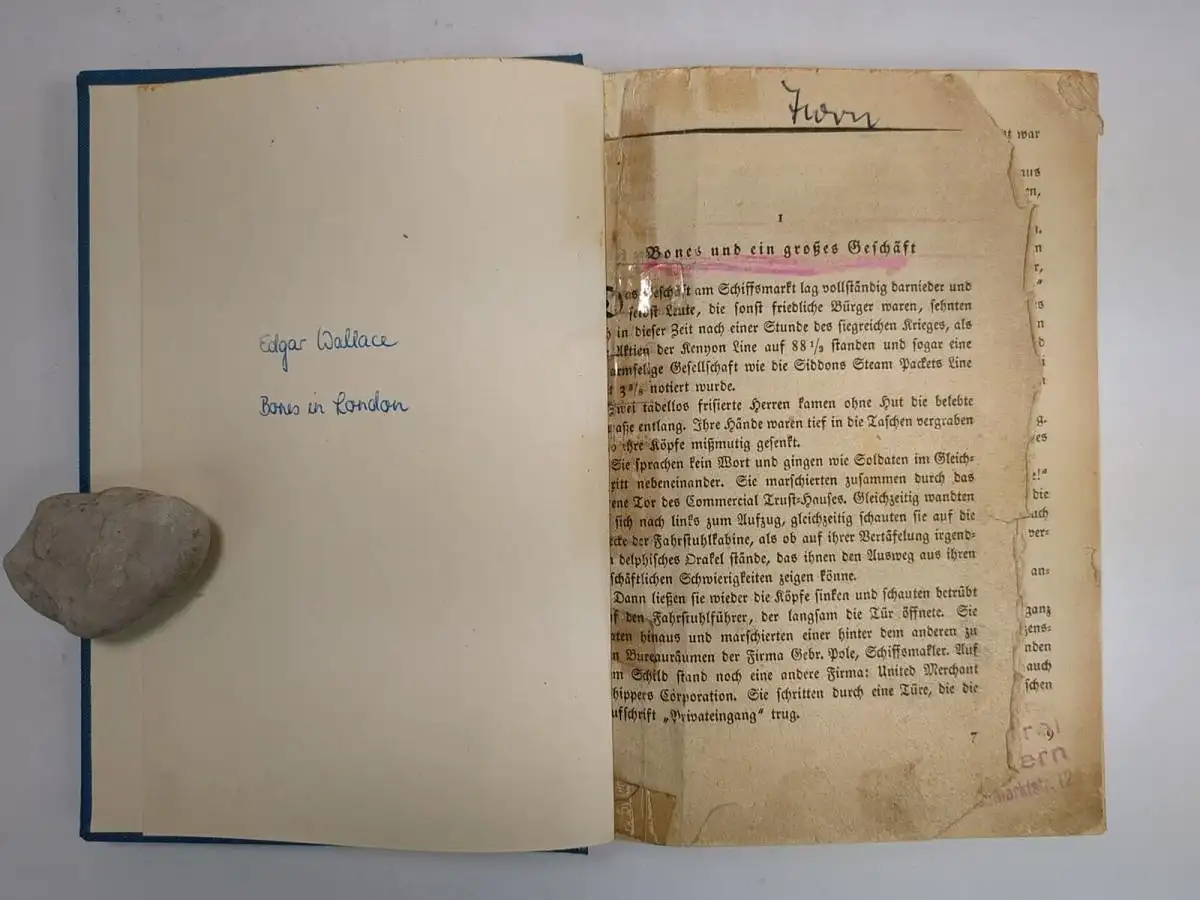 Edgar Wallace
Bones in London
1
Bones und ein großes Geschäft
am Schiffsmarkt lag vollständig darnieder und
selbst Leute, die sonst friedliche Bürger waren, sehnten
in dieser Zeit nach einer Stunde des siegreichen Krieges, als
Aktien der Kenyon Line auf 88 1/2 standen und sogar eine
armselige Gesellschaft wie die Siddons Steam Packets Line
notiert wurde.
Zwei tadellos frisierte Herren kamen ohne Hut die belebte
entlang. Ihre Hände waren tief in die Taschen vergraben
ihre Köpfe mißmutig gesenkt.
Sie sprachen kein Wort und gingen wie Soldaten im Gleich-
ritt nebeneinander. Sie marschierten zusammen durch das
ene Tor des Commercial Trust-Hauses. Gleichzeitig wandten
sich nach links zum Aufzug, gleichzeitig schauten sie auf die
der Fahrstuhlkabine, als ob auf ihrer Vertäfelung irgend-
delphisches Orakel stände, das ihnen den Ausweg aus ihren
schäftlichen Schwierigkeiten zeigen könne.
Dann ließen sie wieder die Köpfe sinken und schauten betrübt
den Fahrstuhlführer, der langsam die Tür öffnete. Sie
hinaus und marschierten einer hinter dem anderen zu
Bureauräumen der Firma Gebr. Pole, Schiffsmakler. Auf
Schild stand noch eine andere Firma: United Merchant
hippers Corporation. Sie schritten durch eine Türe, die die
ufschrift „Privateingang" trug.
7
war
aus
die
ver-
an-
ganz
nden
auch
schen
9